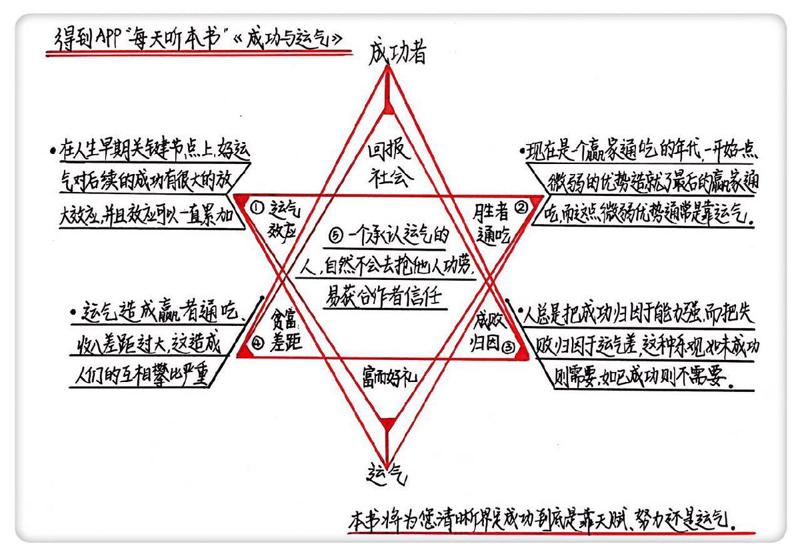 得到APP“每天听本书”《成功与运气》
成功者
• 在人生早期关键节点上,好运
气对后续的成功有很大的放
大效应,并且效应可以一直累加
回报
社会
• 现在是个赢家通吃的年代,一开始一点
微弱的优势造就了最后的赢家通
吃,而这点微弱优势通常是靠运气。
① 运气
效应
胜者 ②
通吃
⑤ 一个承认运气的
人,自然不会去抢他人功劳,
易获合作者信任
• 运气造成赢者通吃、
收入差距过大,这造成
人们的互相攀比严重
贫富
④ 差距
成败
归因 ③
• 人总是把成功归因于能力强,而把失
败归因于运气差,这种乐观,如未成功
则需要,如已成功则不需要。
富而好礼
运气
本书将为您清晰界定成功到底是靠天赋、努力还是运气。